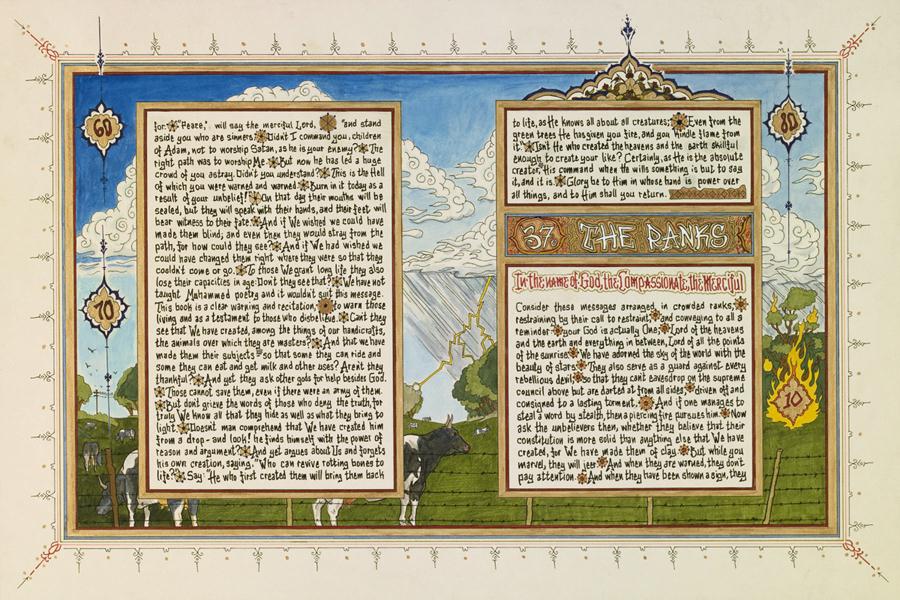 60
70
for. "Peace," will say the merciful Lord, "and stand
aside you who are sinners. Didn't I command you, children
of Adam, not to worship Satan, as he is your enemy? The
right path was to worship Me. But now he has led a huge
crowd of you astray. Didn't you understand? This is the Hell
of which you were warned and warned. Burn in it today as a
result of your unbelief!" On that day their mouths will be
sealed, but they will speak with their hands, and their feet will
bear witness to their fate. And if We wished we could have
made them blind; and even then they would stray from the
path, for how could they see? And if We had wished we
could have changed them right where they were so that they
couldn't come or go. To those We grant long life they also
lose their capacities in age. Don't they see that? We have not
taught Mahammed poetry and it wouldn't suit this message.
This book is a clear warning and recitation to warn those
living and as a testament to those who disbelieve. Can't they
see that We have created, among the things of our handicrafts,
the animals over which they are masters? And that we have
made them their subjects so that some they can ride and
some they can eat and get milk and other uses? Aren't they
thankful? And yet they ask other gods for help besides God.
Those cannot save them, even if there were an army of them.
But don't grieve the words of those who deny the truth, for
truly We know all that they hide as well as what they bring to
light. Doesn't man comprehend that We have created him
from a drop - and look! he finds himself with the power of
reason and argument? And yet argues about Us and forgets
his own creation, saying, "Who can revive rotting bones to
life?" Say: "He who first created them will bring them back
to life, as He knows all about all creatures; Even from the
green trees He has given you fire, and you kindle flame from
it." Isn't He who created the heavens and the earth skillful
enough to create your like? Certainly, as He is the absolute
creator. His command when He wills something is but to say
it, and it is. Glory be to Him in whose hand is power over
all things, and to Him shall you return.
80
37. THE RANKS
In the name of God, the Compassionate, the Merciful
Consider these messages arranged, in crowded ranks,
restraining by their call to restraint, and conveying to all a
reminder: your God is actually One, Lord of the heavens
and the earth and everything in between, Lord of all the points
of the sunrise. We have adorned the sky of the world with the
beauty of stars. They also serve as a guard against every
rebellious devil, so that they can't eavesdrop on the supreme
council above but are darted at from all sides, driven off and
consigned to a lasting torment. And if one manages to
steal a word by stealth, then a piercing fire pursues him. Now
ask the unbelievers then, whether they believe that their
constitution is more solid than anything else that We have
created, for We have made them of clay. But while you
marvel, they will jeer. And when they are warned, they don't
pay attention. And when they have been shown a sign, they
10